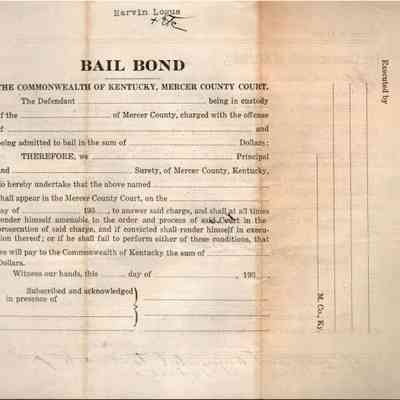 Harvin Logue
+ Etc
BAIL BOND
THE COMMONWEALTH OF KENTUCKY, MERCER COUNTY COURT,
The Defendant being in custody
of the of Mercer County, charged with the offense
of and
being admitted to bail in the sum of Dollars;
THEREFORE, we Principal
and Surety, of Mercer County, Kentucky,
do hereby undertake that the above named
shall appear in the Mercer County Court, on the
day of 195 , to answer said charge, and shall at all times
render himself amenable to the order and process of said Court in the
prosecution of said charge, and if convicted shall render himself in execu-
tion thereof; or if he shall fail to perform either of these conditions, that
we will pay to the Commonwealth of Kentucky the sum of
Dollars.
Witness our hands, this day of , 195 .
Subscribed and acknowledged
in presence of
Executed by
M. Co., Ky.